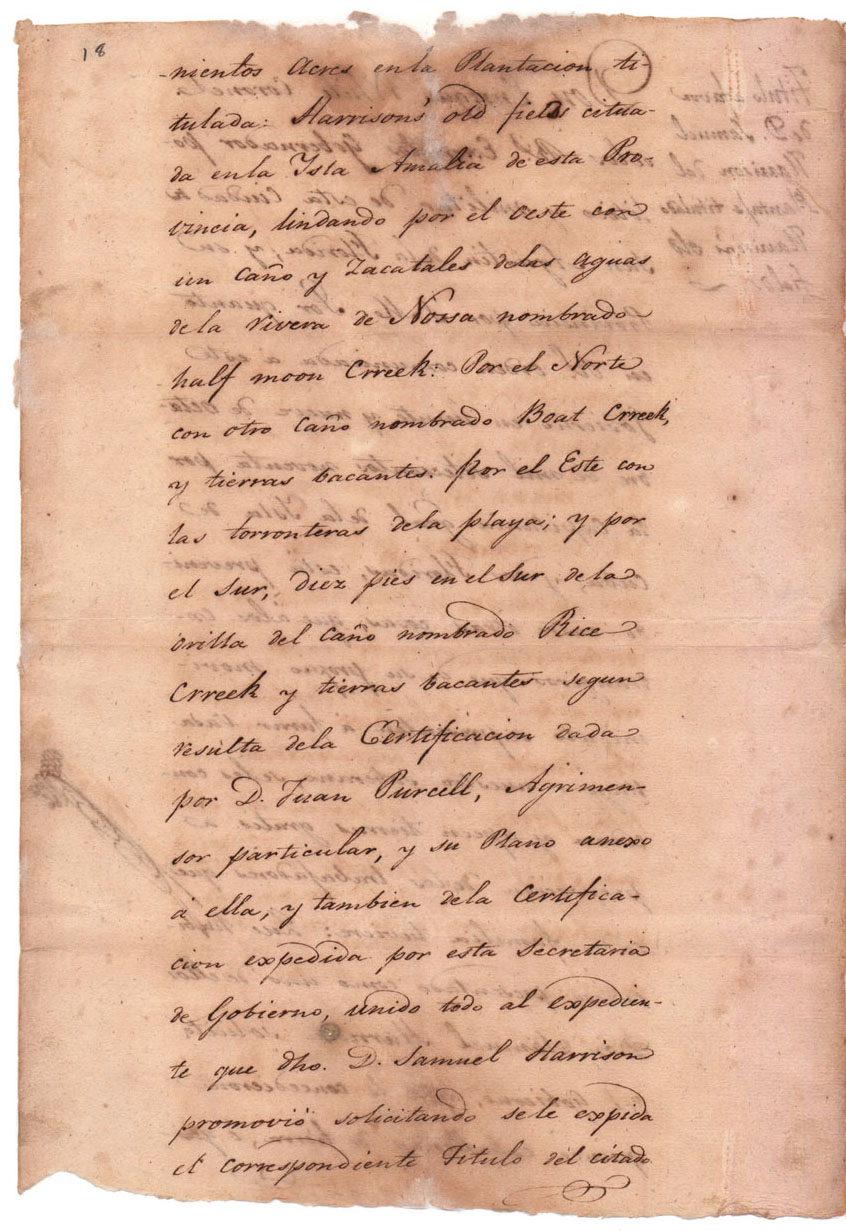 18
-nientos Acres en la Plantacion ti-
tulada: Harrison's old fields citua-
da en la Isla Amalia de esta Pro-
vincia, lindando por el oeste con
un caño y Zacatales delas aguas
de la rivera de Nossa nombrado
half moon Crreek: Por el Norte
con otro caño nombrado Boat Crreek,
y tierras bacantes: por el Este con
las torronteras dela playa; y por
el sur, diez pies en el sur de la
orilla del caño nombrado Rice
Crreek y tierras bacantes segun
resulta dela Certificacion dada
por D. Juan Purcell, Agrimen-
sor particular, y su Plano anexo
á ella, y tambien dela Certifica-
cion expedida por esta Secretaria
de Gobierno, unido todo al expedien-
te que dho. D. Samuel Harrison
promovió solicitando se le expida
el correspondiente Titulo del citado